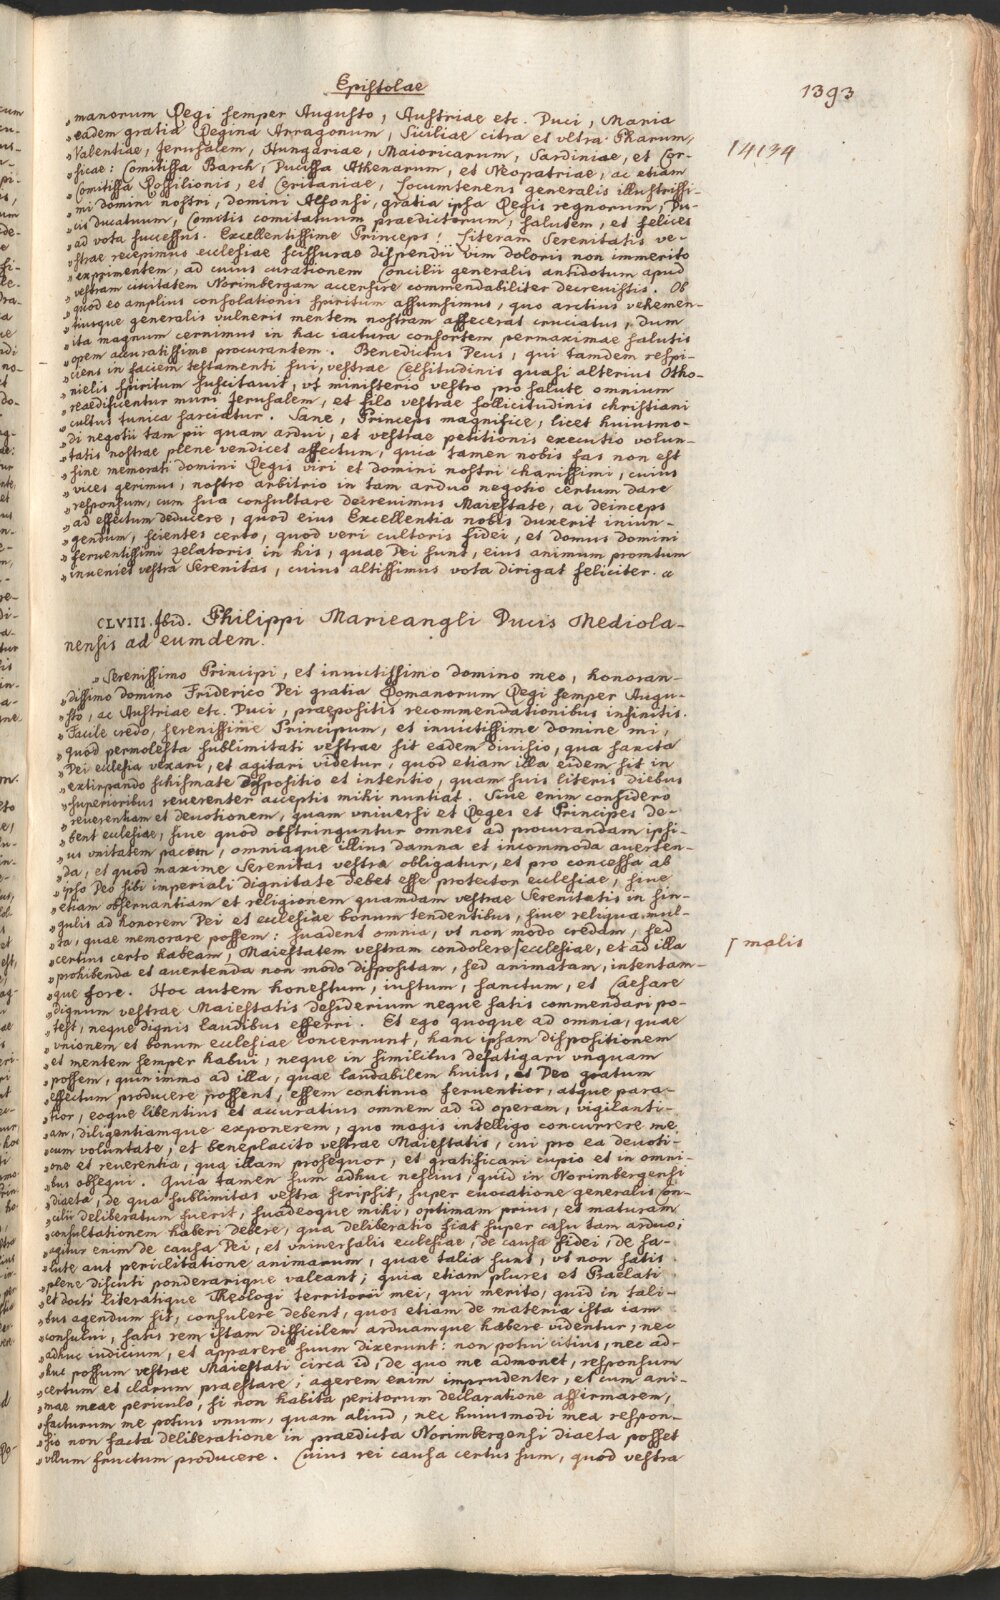 Epistolae
1393
„manorum Regi semper Augusto, Austriae etc. Duci, Maria
„eadem gratia Regina Arragonum, Siciliae citra et vltra Pharum,
14134
„Valentiae, Jerusalem, Hungariae, Maioricarum, Sardiniae, et Cor-
„sicae: Comitissa Barch, Ducissa Athenarum, et Neopatriae, ac etiam
„Comitissa Rossilionis, et Ceritaniae, Locumtenens generalis illustrissi-
„mi domini nostri, domini Alfonsi, gratia ipsa Regis regnorum, Du-
„cis ducatuum, Comitis comitatuum praedictorum, salutem, et felices
„ad vota successus. Excellentissime Princeps! Literam Serenitatis ve-
„strae recepimus ecclesiae scissurae dispendii vim doloris non immerito
„exprimentem, ad cuius curationem Concilii generalis antidotum apud
„vestram ciuitatem Norimbergam accersire commendabiliter decreuistis. Ob
„quod eo amplius consolationis spiritum assumsimus, quo arctius vehemen-
„tiusque generalis vulneris mentem nostram affecerat cruciatus, dum
„ita magnum cernimus in hac iactura consortem permaximae salutis
„opem accuratissime procurantem. Benedictus Deus, qui tamdem respi-
„ciens in faciem testamenti sui, vestrae Celsitudinis quasi alterius Otho-
„nielis spiritum suscitauit, vt ministerio vestro pro salute omnium
„reaedificentur muri Jerusalem, et filo vestrae sollicitudinis christiani
„cultus tunica sarciatur. Sane, Princeps magnifice, licet huiusmo-
„di negotii tam pii quam ardui, et vestrae petitionis executio volun-
„tatis nostrae plene vendicet affectum, quia tamen nobis fas non est
„sine memorati domini Regis viri et domini nostri charissimi, cuius
„vices gerimus, nostro arbitrio in tam arduo negotio certum dare
„responsum, cum sua consultare decreuimus Maiestate, ac deinceps
„ad effectum deducere, quod eius Excellentia nobis duxerit iniun-
„gendum, scientes certo, quod veri cultoris fidei, et domus domini
„feruentissimi zelatoris in his, quae Dei sunt, eius animum promtum
„inueniet vestra Serenitas, cuius altissimus vota dirigat feliciter.
CLVIII. Ibid. Philippi Marieangli Ducis Mediola-
nensis ad eumdem.
„Serenissimo Principi, et inuictissimo domino meo, honoran-
„dissimo domino Friderico Dei gratia Romanorum Regi semper Augu-
„sto, ac Austriae etc. Duci, praepositis recommendationibus infinitis.
„Facile credo, serenissime Principum, et inuictissime domine mi,
„quod permolesta sublimitati vestrae sit eadem diuisio, qua sancta
„Dei ecclesia vexari, et agitari videtur, quod etiam illa eidem sit in
„extirpando schismate dispositio et intentio, quam suis literis diebus
„superioribus reuerenter acceptis mihi nuntiat. Siue enim considero
„reuerentiam et deuotionem, quam vniuersi et Reges et Principes de-
„bent ecclesiae, siue quod obstringuntur omnes ad procurandam ipsi-
„us vnitatem pacem, omniaque illius damna et incommoda auerten-
„da, et quod maxime Serenitas vestra obligatur, et pro concessa ab
„ipso Deo sibi imperiali dignitate debet esse protector ecclesiae, siue
„etiam obseruantiam et religionem quamdam vestrae Serenitatis in sin-
„gulis ad honorem Dei et ecclesiae bonum tendentibus, siue reliqua mul-
„ta, quae memorare possem: suadent omnia, vt non modo credam, sed
„certius certo habeam, Maiestatem vestram condolere⌈ecclesiae, et ad illa
⌈ malis
„prohibenda et auertenda non modo dispositam, sed animatam, intentam-
„que fore. Hoc autem honestum, iustum, sanctum, et Caesare
„dignum vestrae Maiestatis desiderium neque satis commendari po-
„test, neque dignis laudibus efferri. Et ego quoque ad omnia, quae
„vnionem et bonum ecclesiae concernunt, hanc ipsam dispositionem
„et mentem semper habui, neque in similibus defatigari vnquam
„possem, quinimmo ad illa, quae laudabilem huius, et Deo gratum
„effectum producere possent, essem continuo feruentior, atque para-
„tior, eoque libentius et accuratius omnem ad id operam, vigilanti-
„am, diligentiamque exponerem, quo magis intelligo concurrere me
„cum voluntate, et beneplacito vestrae Maiestatis, cui pro ea deuoti-
„one et reuerentia, qua illam prosequor, et gratificari cupio et in omni-
„bus obsequi. Quia tamen sum adhuc nescius, quid in Norimbergensi
„diaeta, de qua sublimitas vestra scripsit, super euocatione generalis con-
„cilii deliberatum fuerit, suadeoque mihi, optimam prius, et maturam
„consultationem haberi debere, qua deliberatio fiat super casu tam arduo;
„agitur enim de causa Dei, et vniuersalis ecclesiae, de causa fidei, de sa-
„lute aut periclitatione animarum, quae talia sunt, vt non satis
„plene discuti ponderarique valeant; quia etiam plures et Praelati
„et docti literatique Theologi territorii mei, qui merito, quid in tali-
„bus agendum sit, consulere debent, quos etiam de materia ista iam
„consului, satis rem istam difficilem arduamque habere videntur, nec
„adhuc iudicium, et apparere suum dixerunt: non potui citius, nec ad-
„huc possum vestrae Maiestati circa id, de quo me admonet, responsum
„certum et clarum praestare; agerem enim imprudenter, et cum ani-
„mae meae periculo, si non habita peritorum declaratione affirmarem,
„facturum me potius vnum, quam aliud, nec huiusmodi mea respon-
„sio non facta deliberatione in praedicta Norimbergensi diaeta posset
„vllum fructum producere. Cuius rei causa certus sum, quod vestra